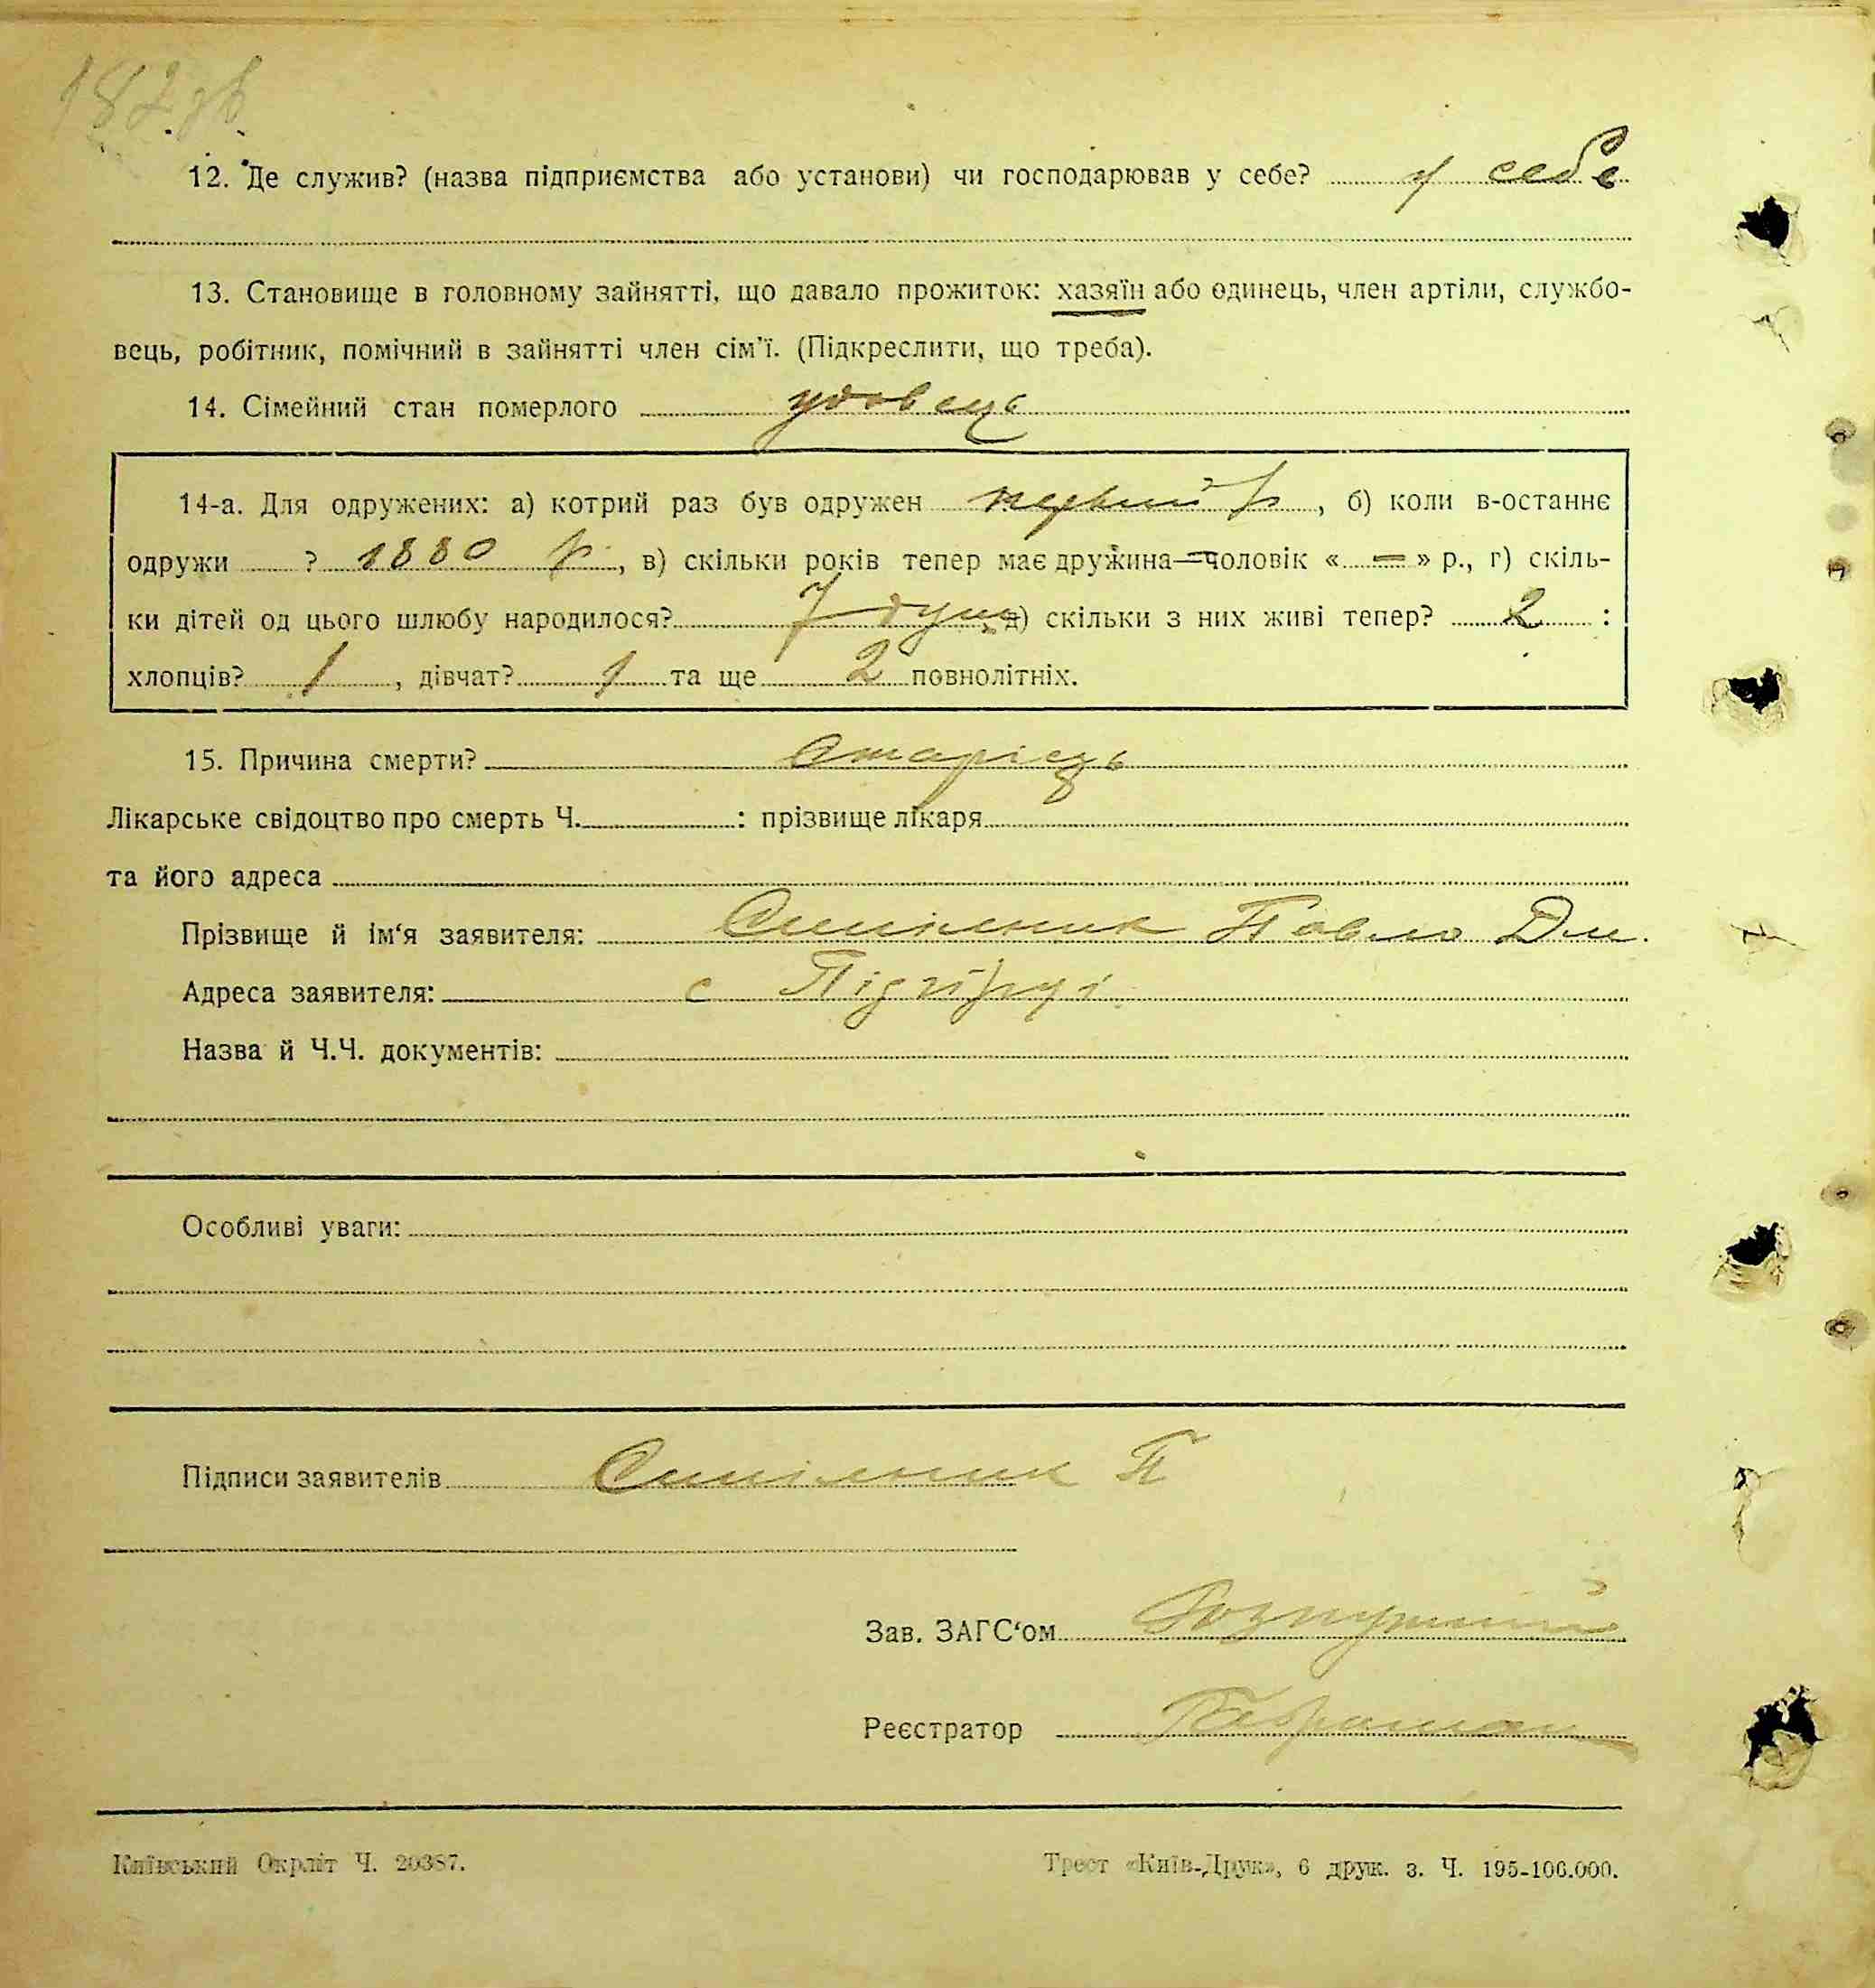 182 зв
12. Де служив? (назва підприємства або установи) чи господарював у себе? у себе
13. Становище в головному зайнятті, що давало прожиток: хазяїн або одинець, член артіли, службо-
вець, робітник, помічний в зайнятті член сім'ї. (Підкреслити, що треба).
14. Сімейний стан померлого удовець
14-а. Для одружених: а) котрий раз був одружен первий р, б) коли в-останнє
одружи ? 1880 р., в) скільки років тепер має дружина—чоловік «—» р., г) скіль-
ки дітей од цього шлюбу народилося? 7 душ д) скільки з них живі тепер? 2 :
хлопців? 1, дівчат? 1 та ще 2 повнолітніх.
15. Причина смерти? Старість
Лікарське свідоцтво про смерть Ч. : прізвище лікаря
та його адреса
Прізвище й ім'я заявителя: Павло Дм.
Адреса заявителя: с Підгірці
Назва й Ч.Ч. документів:
Особливі уваги:
Підписи заявителів П
Зав. ЗАГС'ом
Реєстратор
Київський Окрліт Ч. 20387.
Трест «Київ-Друк», 6 друк. з. Ч. 195-100.000.